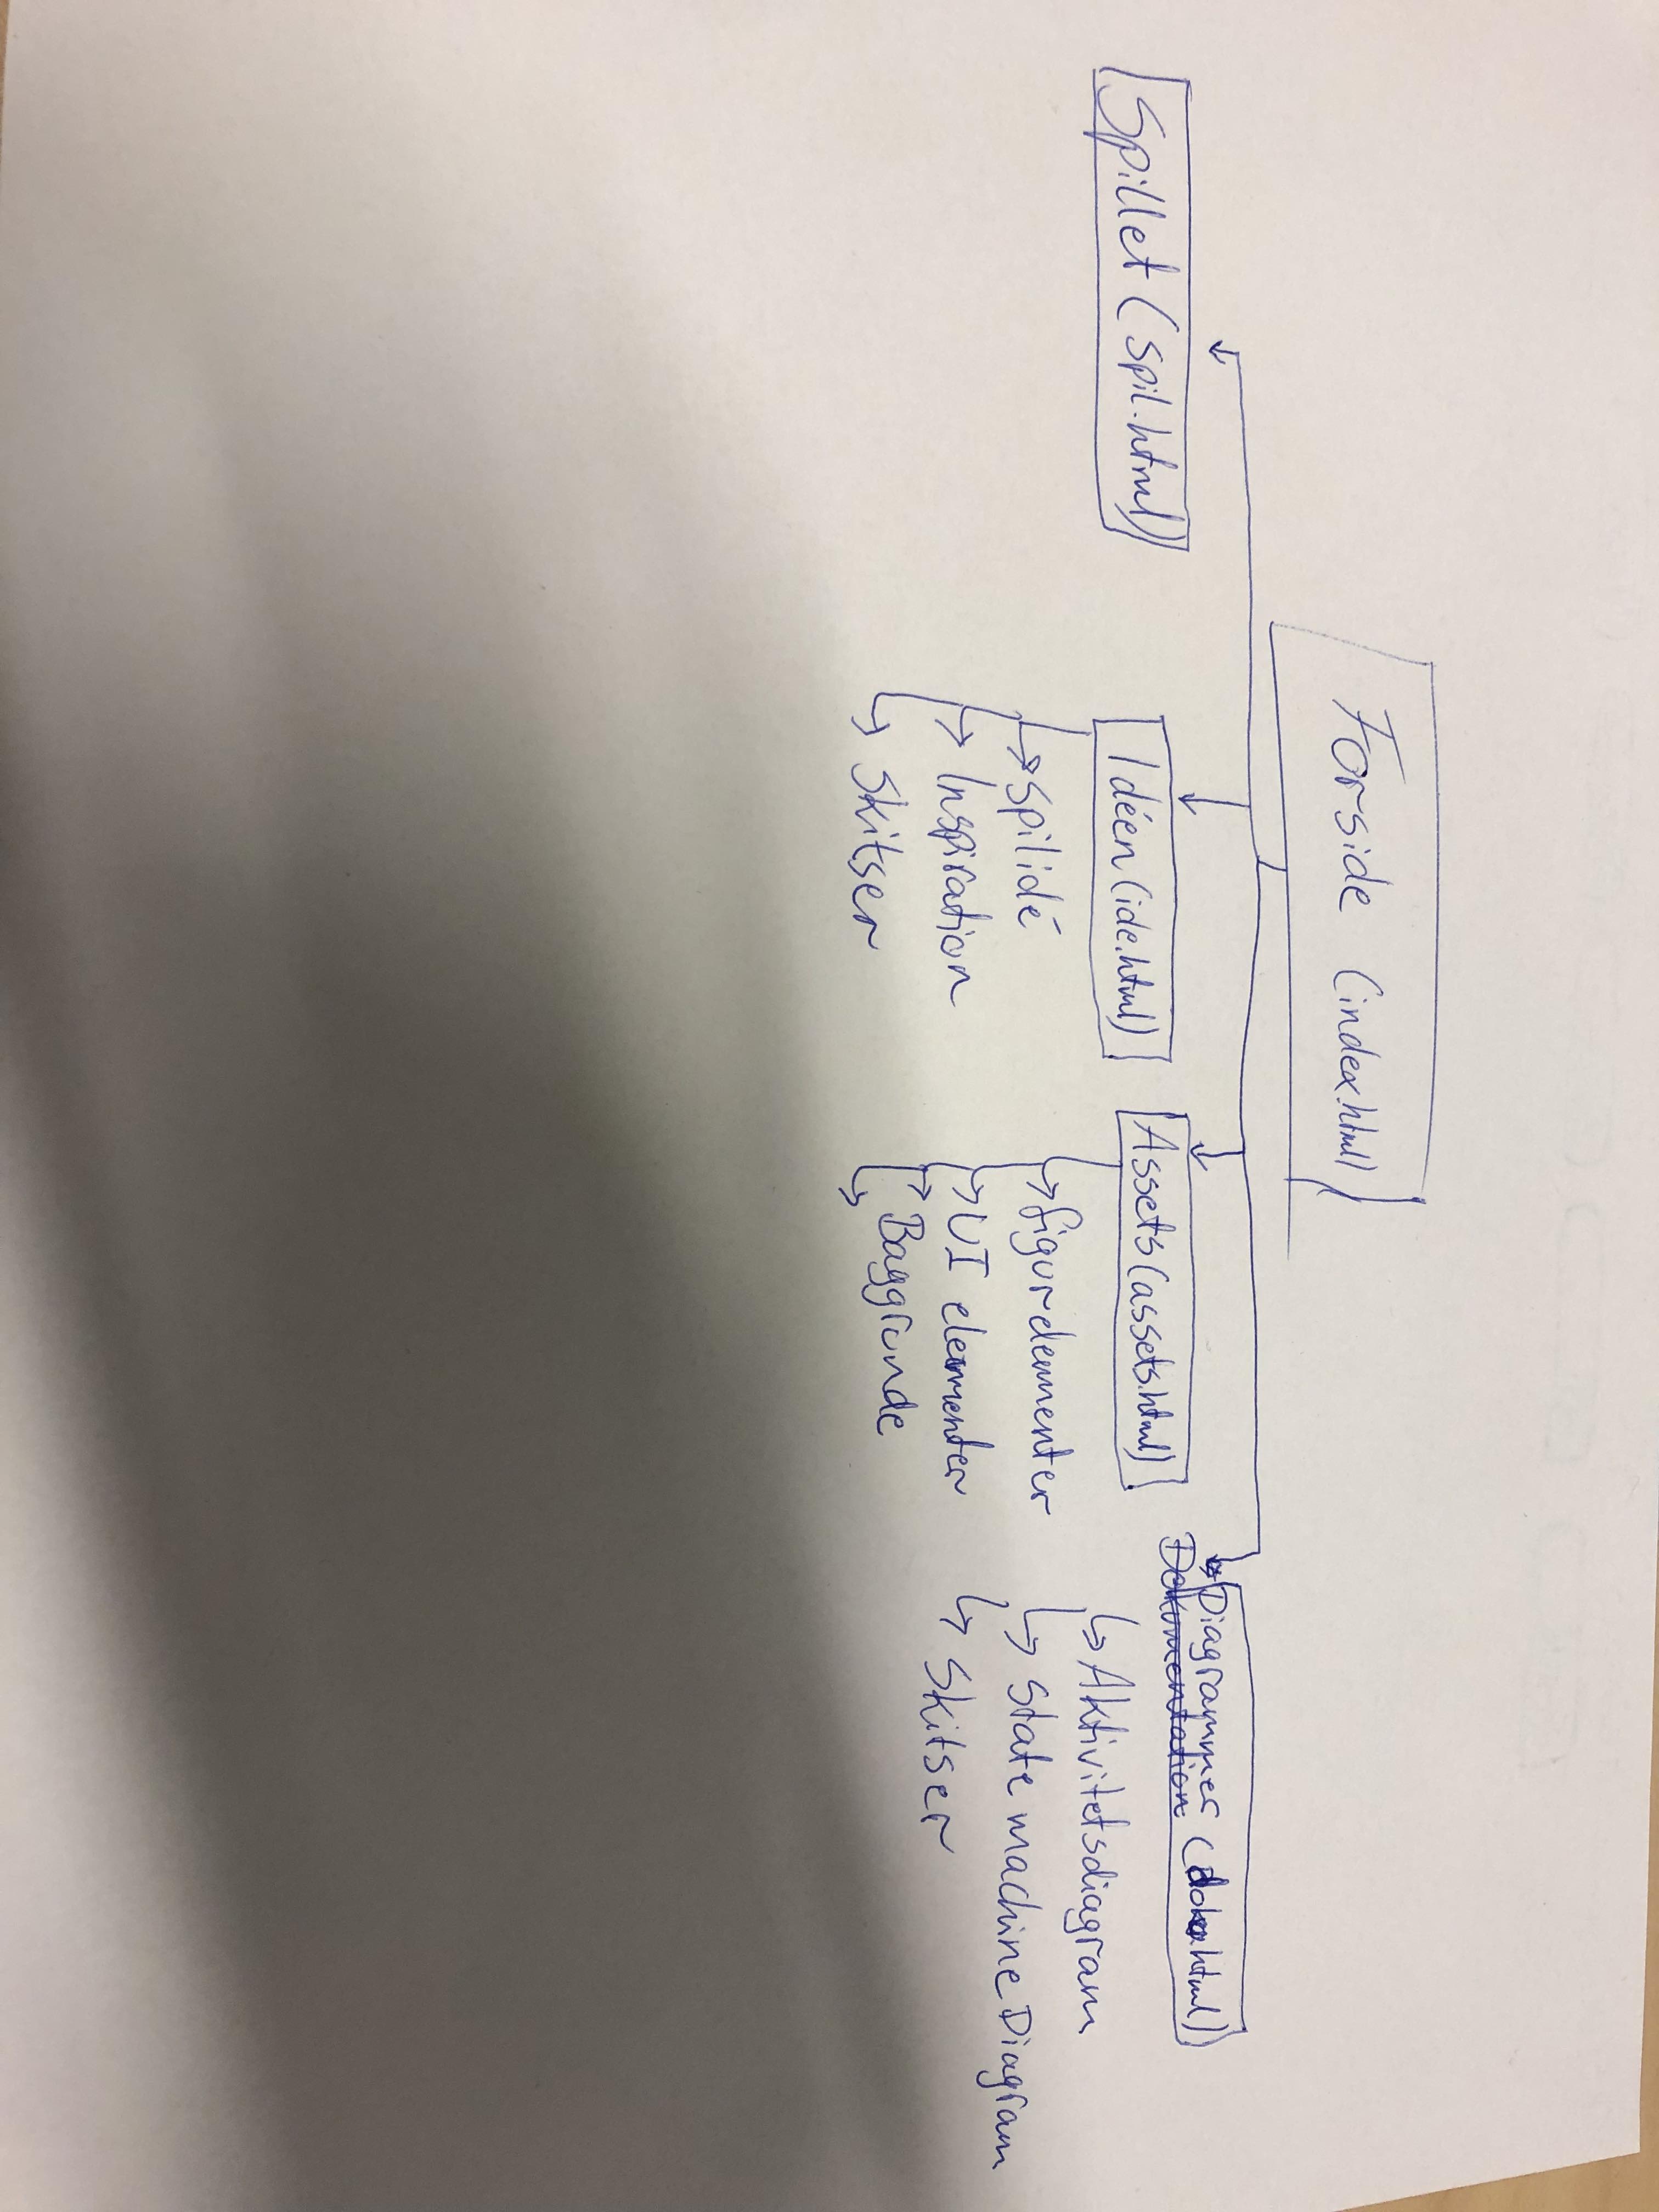 Forside (index.html)
Spillet (spil.html)
Idéen (ide.html)
spilidé
Inspiration
Skitser
Assets (assets.html)
figurelementer
UI elementer
Baggrunde
Diagrammer
Dokumentation
Aktivitetsdiagram
State machine Diagram
Skitser